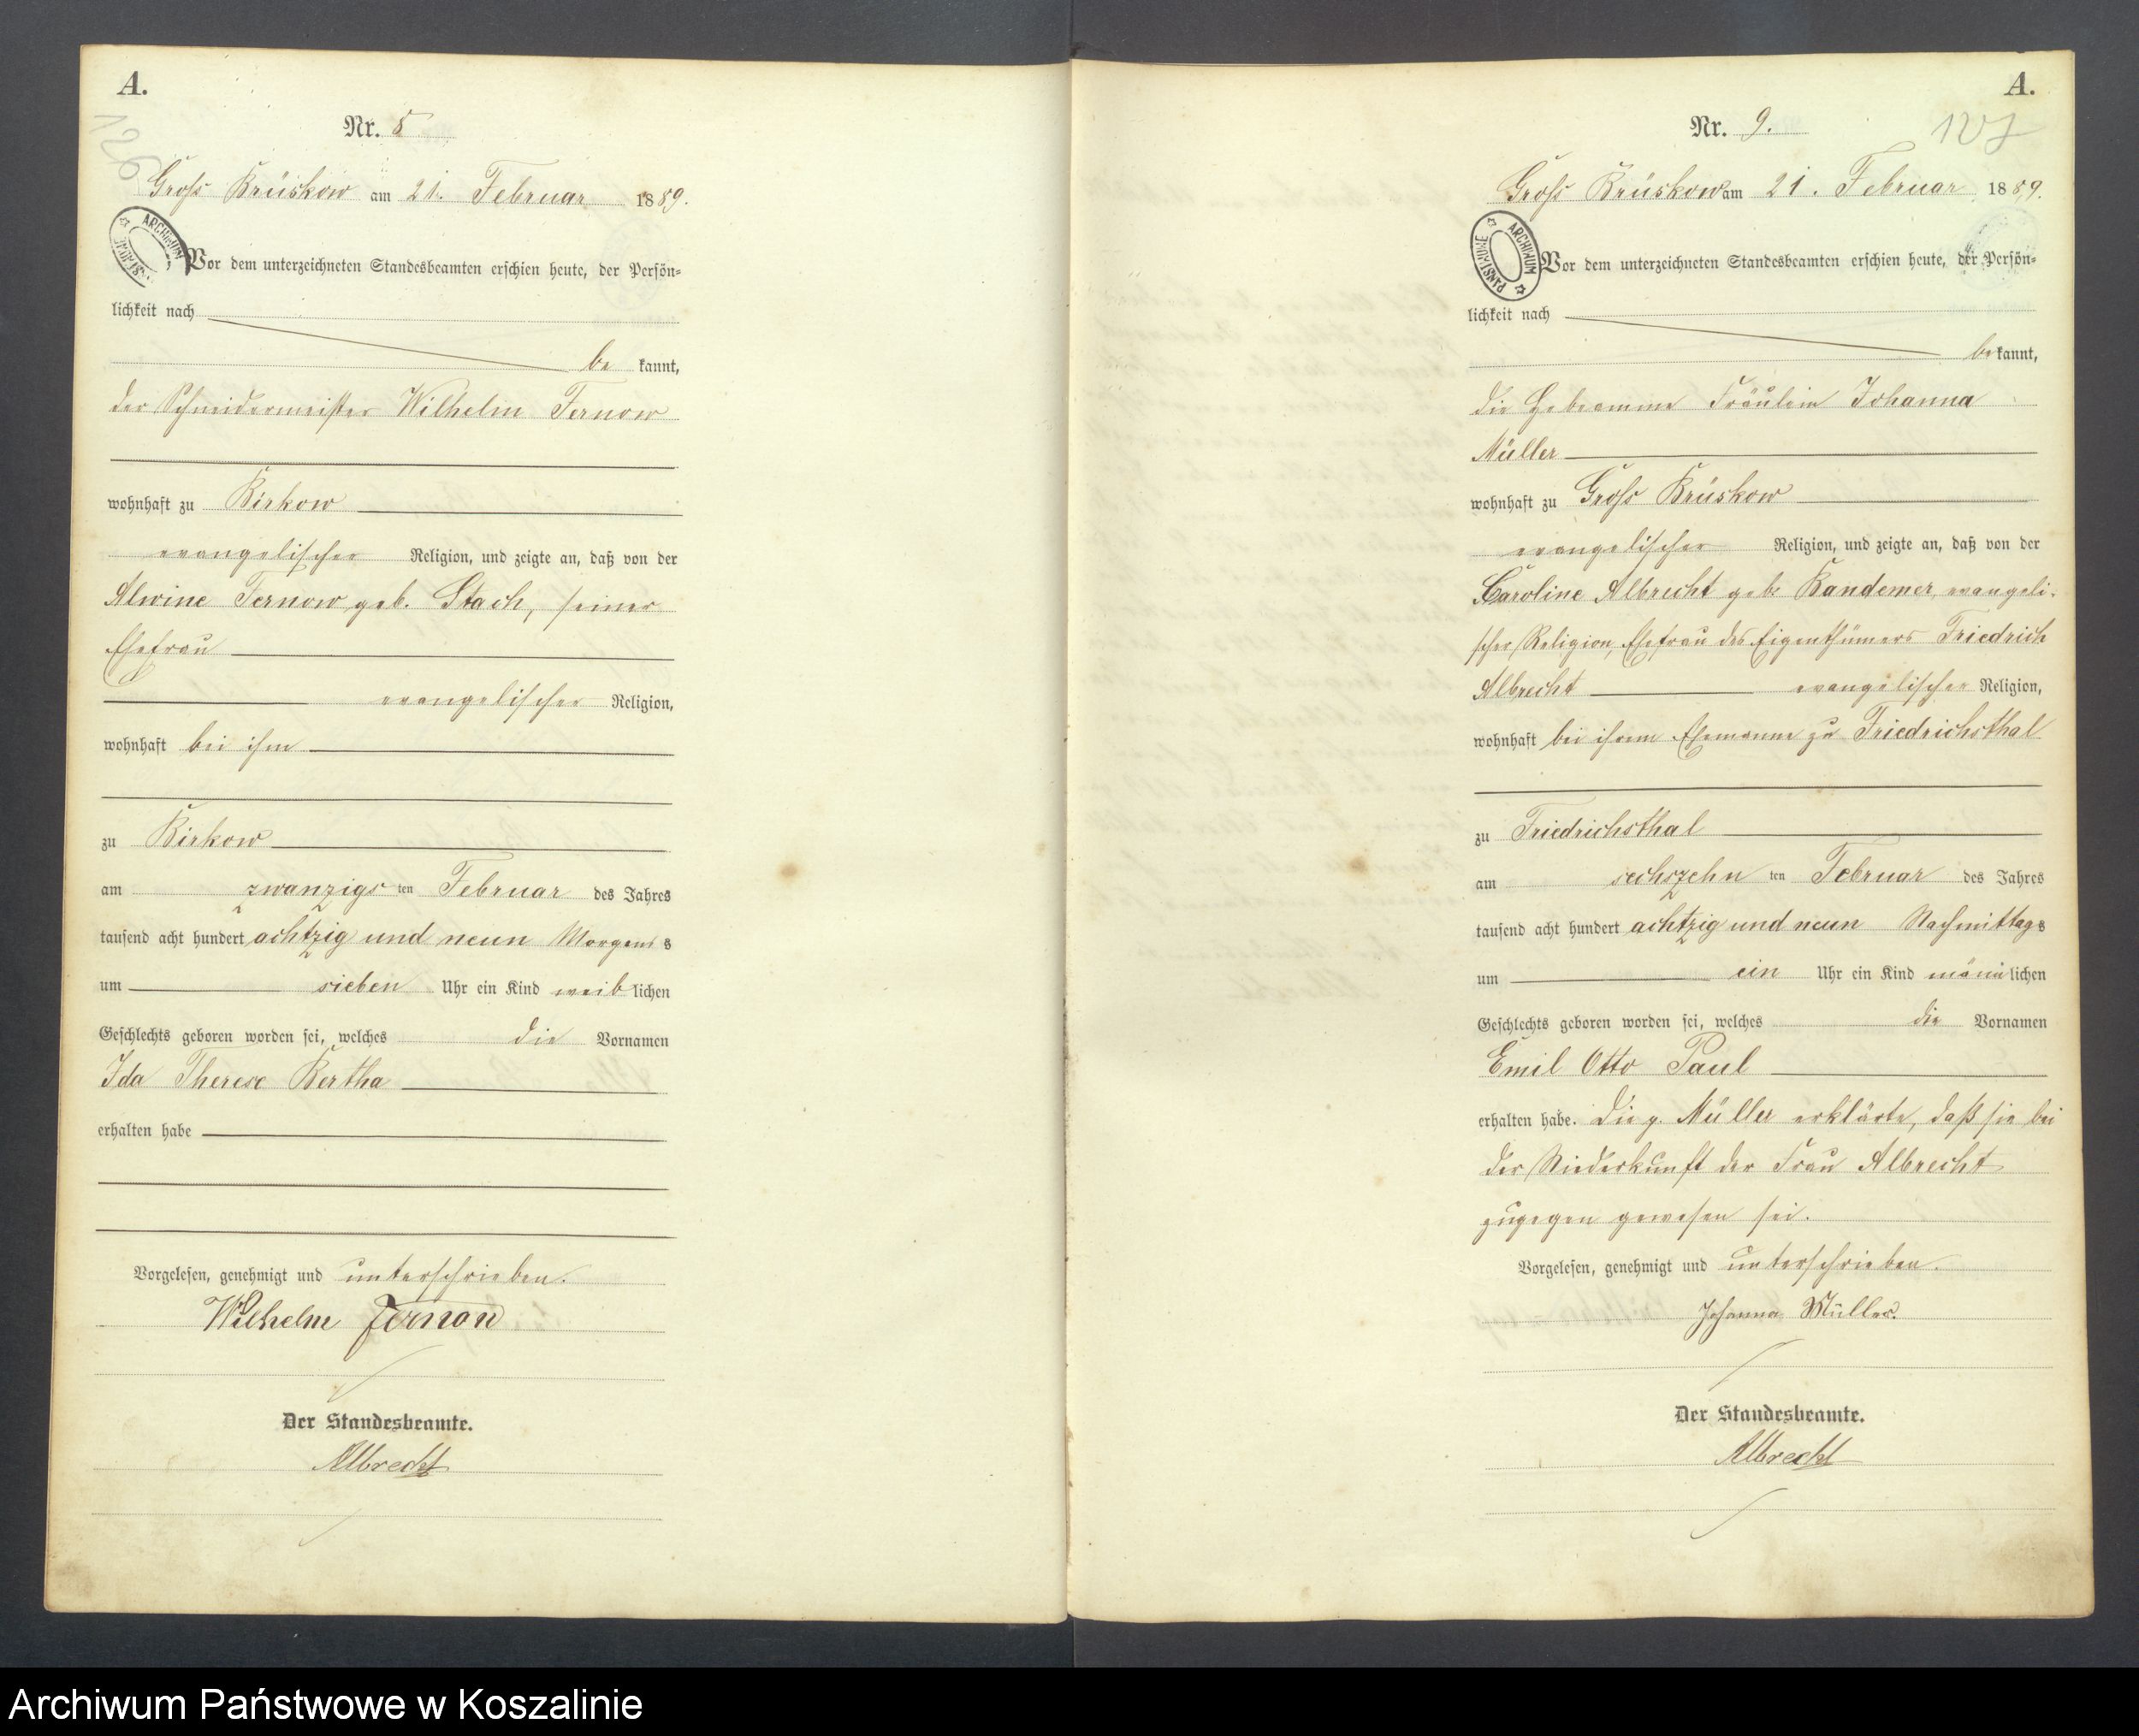 A.
126
Nr. 8
Groß Brüskow am 21. Februar 1889.
ARCHIWUM
Vor dem unterzeichneten Standesbeamten erschien heute, der Persön-
lichkeit nach
be kannt,
der Schneidermeister Wilhelm Fernow
wohnhaft zu Birkow
evangelischer Religion, und zeigte an, daß von der
Alwine Fernow geb. Stach, seiner
Ehefrau
evangelischer Religion,
wohnhaft bei ihm
zu Birkow
am zwanzigsten Februar des Jahres
tausend acht hundert achtzig und neun Morgens
um sieben Uhr ein Kind weiblichen
Geschlechts geboren worden sei, welches die Vornamen
Ida Therese Bertha
erhalten habe
Vorgelesen, genehmigt und unterschrieben.
Wilhelm Fernow
Der Standesbeamte.
Albrecht
A.
127
Nr. 9.
Groß Brüskow am 21. Februar 1889.
ARCHIWUM PAŃSTWOWE
Vor dem unterzeichneten Standesbeamten erschien heute, der Persön-
lichkeit nach
bekannt,
die Hebeamme Fräulein Johanna
Müller
wohnhaft zu Groß Brüskow
evangelischer Religion, und zeigte an, daß von der
Caroline Albrecht geb. Bandemer, evangeli-
scher Religion, Ehefrau des Eigenthümers Friedrich
Albrecht evangelischer Religion,
wohnhaft bei ihrem Ehemanne zu Friedrichsthal
zu Friedrichsthal
am sechszehnten Februar des Jahres
tausend acht hundert achtzig und neun Nachmittags
um ein Uhr ein Kind männlichen
Geschlechts geboren worden sei, welches die Vornamen
Emil Otto Paul
erhalten habe. Die p. Müller erklärte, daß sie bei
der Niederkunft der Frau Albrecht
zugegen gewesen sei.
Vorgelesen, genehmigt und unterschrieben.
Johanna Müller.
Der Standesbeamte.
Albrecht
Archiwum Państwowe w Koszalinie